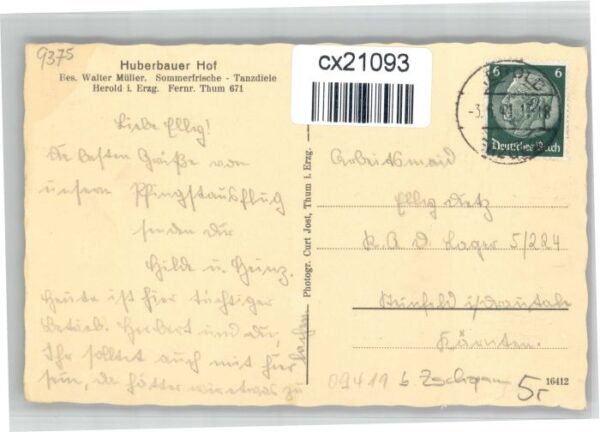 9375
Huberbauer Hof
Bes. Walter Müller. Sommerfrische - Tanzdiele
Herold i. Erzg. Fernr. Thum 671
Liebe Elly!
Die besten Grüße von
unserm Pfingstausflug
senden dir
Hilde u. Heinz.
Heute ist hier tüchtiger
Betrieb. Herbert und du,
Ihr solltet auch mit hier
sein, da hätten wir etwas zu
lachen
Photogr. Curt Jost, Thum i. Erzg.
cx21093
6 6
Deutsches Reich
Arbeitsmaid
Elly
R.A.D. Lager 5/224
Steinfeld i/Drautale
Kärnten.
09419 b Zschopau
5,-
16412